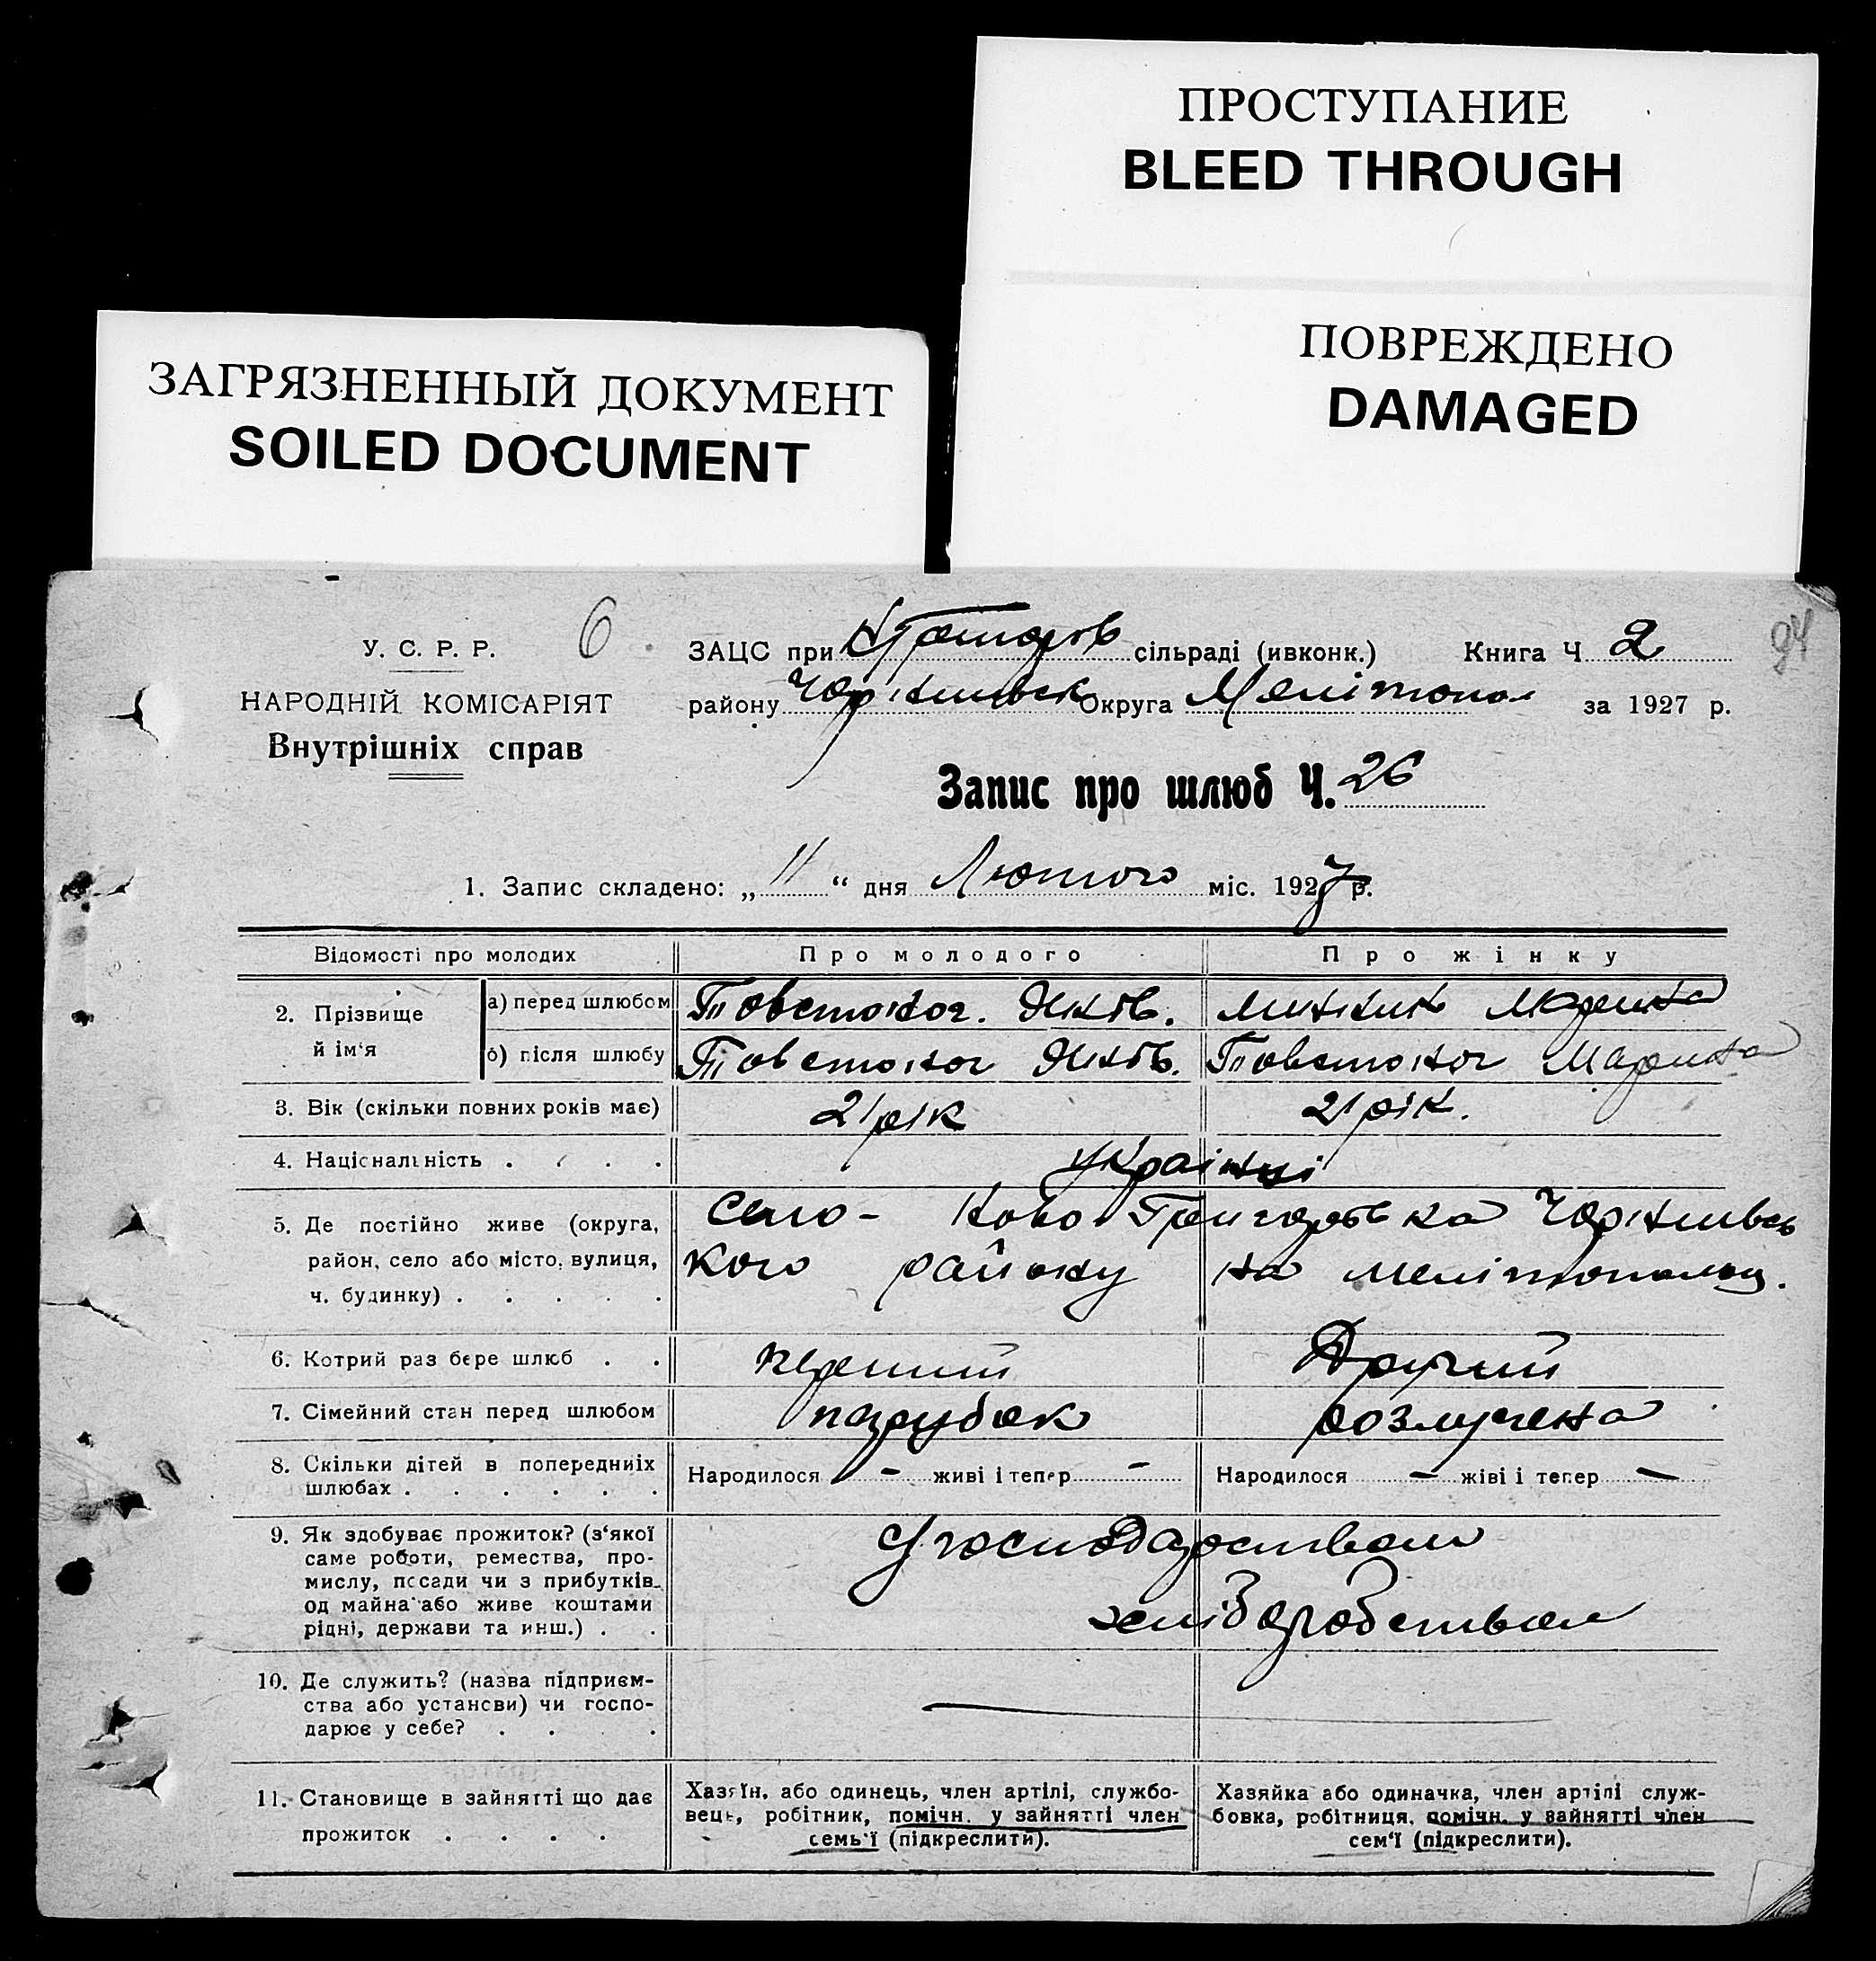 ПРОСТУПАНИЕ
BLEED THROUGH
ПОВРЕЖДЕНО
DAMAGED
ЗАГРЯЗНЕННЫЙ ДОКУМЕНТ
SOILED DOCUMENT
У. С. Р. Р.
НАРОДНІЙ КОМІСАРІЯТ
Внутрішніх справ
6
94
ЗАЦС при сільраді (ивконк.) Книга Ч 2
району Чернигівськ Округа Мелітопол за 1927 р.
Запис про шлюб Ч. 26
1. Запис складено: „ 11 “ дня Лютого міс. 1927 р.
Відомості про молодих Про молодого Про жінку
2. Прізвище й ім‘я
а) перед шлюбом Товстоног. Яків. Минник Марина
б) після шлюбу Товстоног Яків. Товстоног Марина
3. Вік (скільки повних років має) 21 рік 21 рік.
4. Національність . . . . українці
5. Де постійно живе (округа, село - Ново Григорівка Чернигівсь
район, село або місто, вулиця, кого району на Мелітопольщ.
ч. будинку) . . . . .
6. Котрий раз бере шлюб . . перший Другий
7. Сімейний стан перед шлюбом парубок розлучена
8. Скільки дітей в попередниіх Народилося – живі і тепер – Народилося – жіві і тепер –
шлюбах . . . . . .
9. Як здобуває прожиток? (з‘якої господарством
саме роботи, ремества, про-
мислу, посади чи з прибутків хліборобством
од майна або живе коштами
рідні, держави та инш.) . .
10. Де служить? (назва підприєм-
ства або установи) чи госпо-
дарює у себе? . . . .
11. Становище в зайнятті що дає прожиток . . . .
Хазяїн, або одинець, член артілі, службо-
вець, робітник, помічн. у зайнятті член
семь‘ї (підкреслити).
Хазяйка або одиначка, член артілі служ-
бовка, робітниця, помічн. у зайнятті член
сем‘ї (підкреслити).